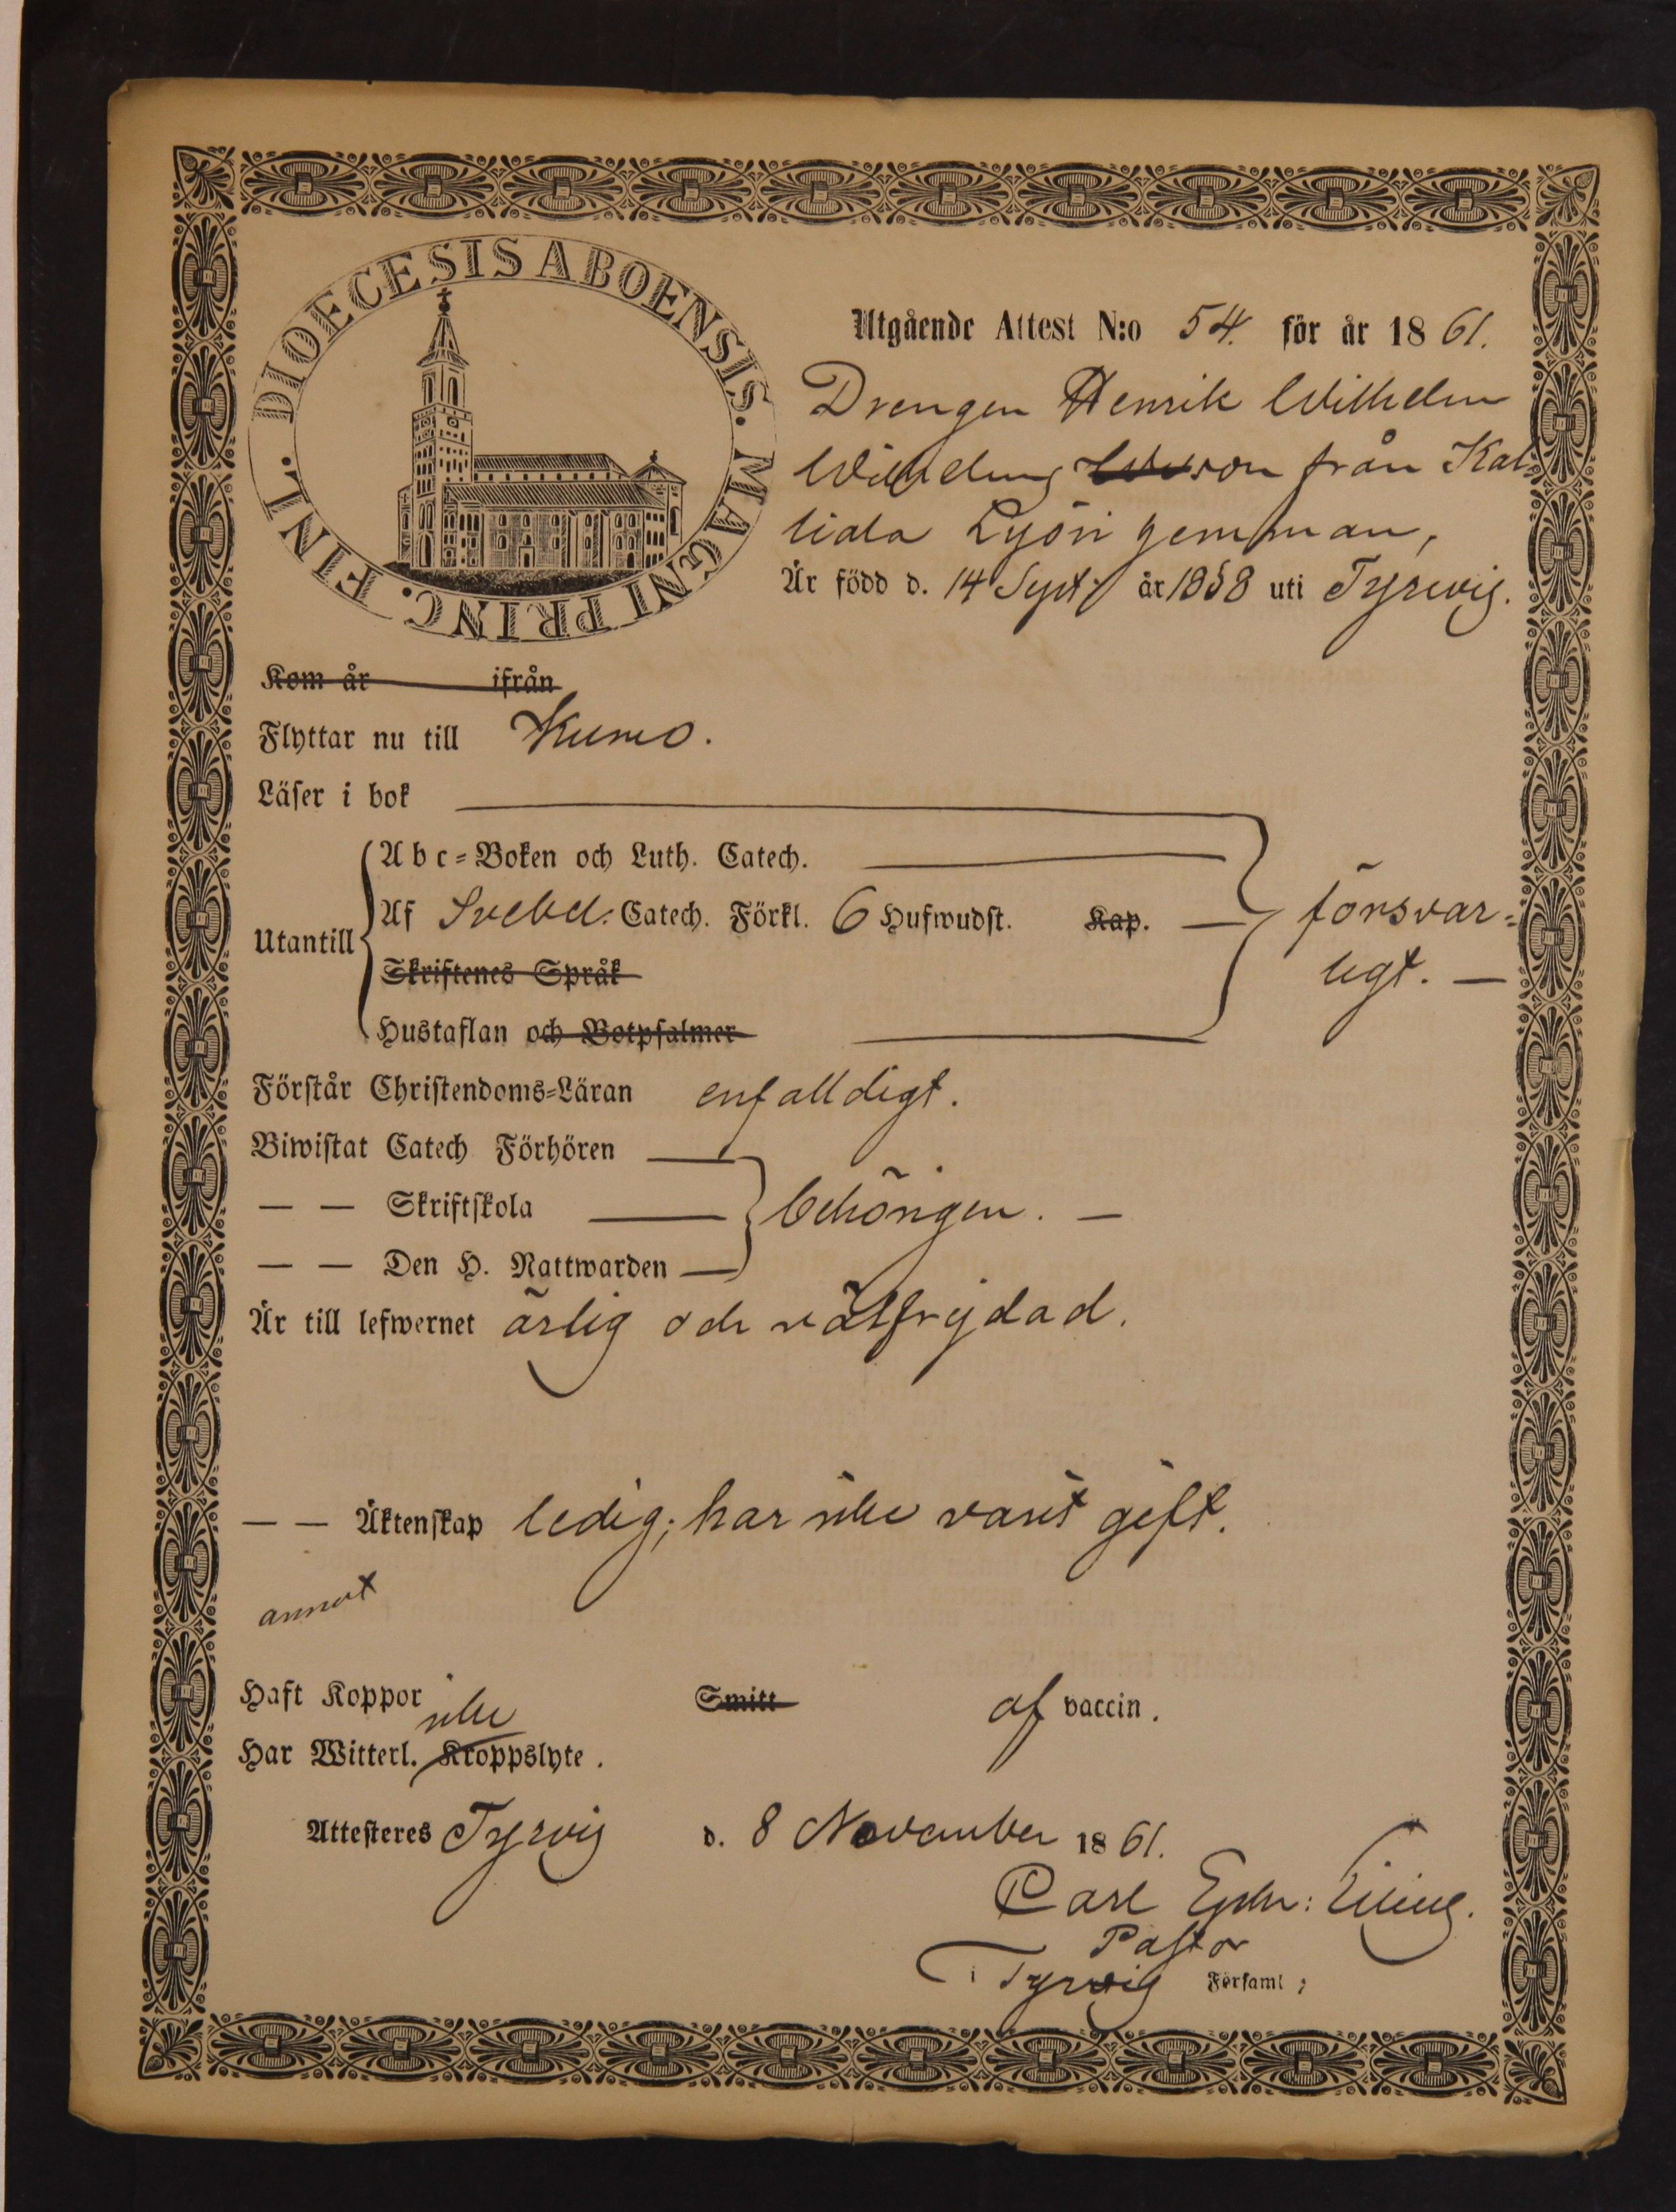 DIOECESIS ABOENSIS. MAGNI PRINC. FINL.
Utgående Attest N:o 54. för år 1861.
Drengen Henrik Wilhelm
från Kal
liala
Är född d. 14 Sept. år 18 8 uti Tyrvis.
Kom år ifrån
Flyttar nu till Kumo.
Läser i bok
Utantill
Abc-Boken och Luth. Catech.
Af Svebel. Catech. Förkl. 6 Hufwudst. Kap.
Skriftenes Språk
Hustaflan och Botpsalmer
försvar-
ligt.
Förstår Christendoms-Läran enfalldigt.
Biwistat Catech Förhören
— — Skriftskola behörigen.
— — Den H. Nattwarden
Är till lefwernet ärlig och välfrejdad.
— — Äktenskap ledig; har icke varit gift.
annat
Haft Koppor Smitt af vaccin.
Har Witterl. icke Kroppslyte.
Attesteres Tyrvis d. 8 November 1861.
Carl
Pastor
i Tyrvis Församl;